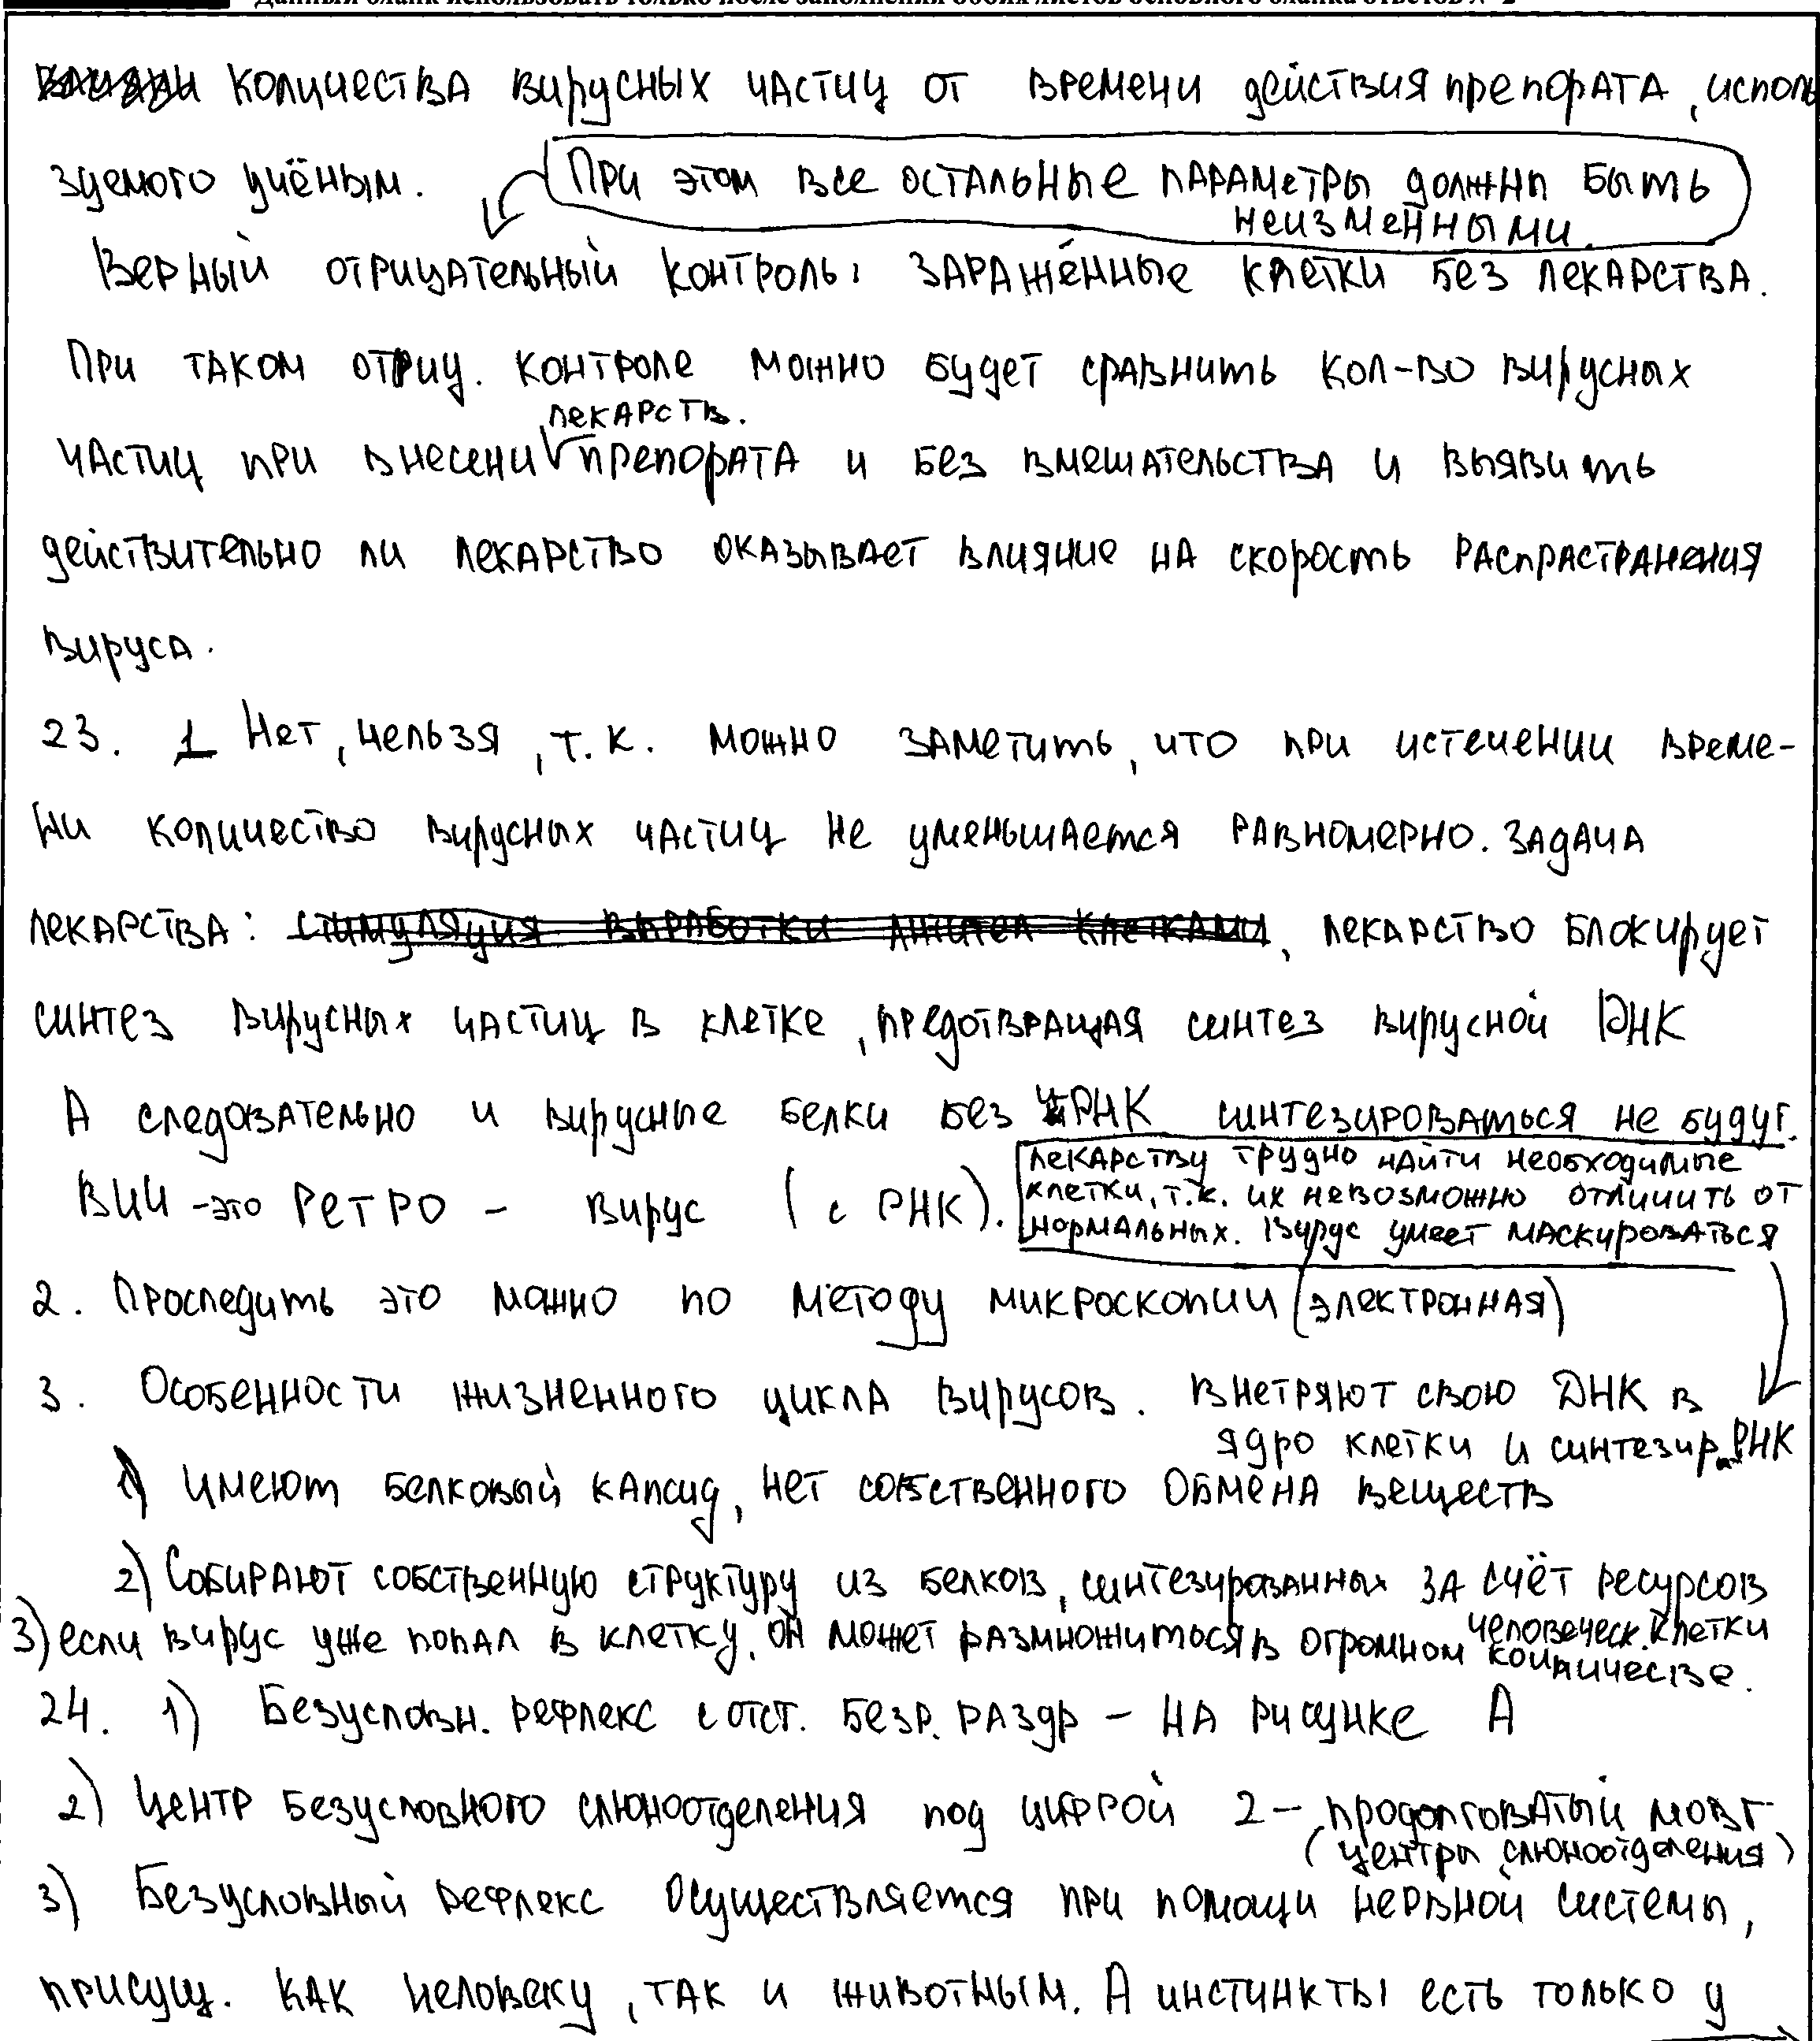 Данный бланк использовать только после заполнения обоих листов основного бланка ответов № 2
количества вирусных частиц от времени действия препората, исполь
зуемого учёным.
При этом все остальные параметры должны быть
неизменными.
Верный отрицательный контроль: заражённые клетки без лекарства.
При таком отриц. контроле можно будет сравнить кол-во вирусных
лекарств.
частиц при внесени препората и без вмешательства и выявить
действительно ли лекарство оказывает влияние на скорость распрастранения
вируса.
23. 1 Нет, нельзя, т.к. можно заметить, что при истечении време-
ни количество вирусных частиц не уменьшается равномерно. Задача
лекарства: стимуляция выработки антител клетками, лекарство блокирует
синтез вирусных частиц в клетке, предотвращая синтез вирусной ДНК
А следовательно и вирусные белки без РНК синтезироваться не будут.
ВИЧ - это ретро - вирус (с РНК).
лекарству трудно найти необходимые
клетки, т.к. их невозможно отличить от
нормальных. Вирус умеет маскироваться
2. Проследить это можно по методу микроскопии (электронная)
3. Особенности жизненного цикла вирусов. Внетряют свою ДНК в
ядро клетки и синтезир. РНК
1) Имеют белковый капсид, нет собственного обмена веществ
2) Собирают собственную структуру из белков, синтезированных за счёт ресурсов
человеческ. клетки
3) если вирус уже попал в клетку, он может размножиться в огромном
количестве.
24. 1) Безусловн. рефлекс с отст. безр. раздр - на рисунке А
2) Центр безусловного слюноотделения под цифрой 2 - продолговатый мозг
(центры слюноотделения)
3) Безусловный рефлекс осуществляется при помощи нервной системы,
присущ. как человеку, так и животным. А инстинкты есть только у